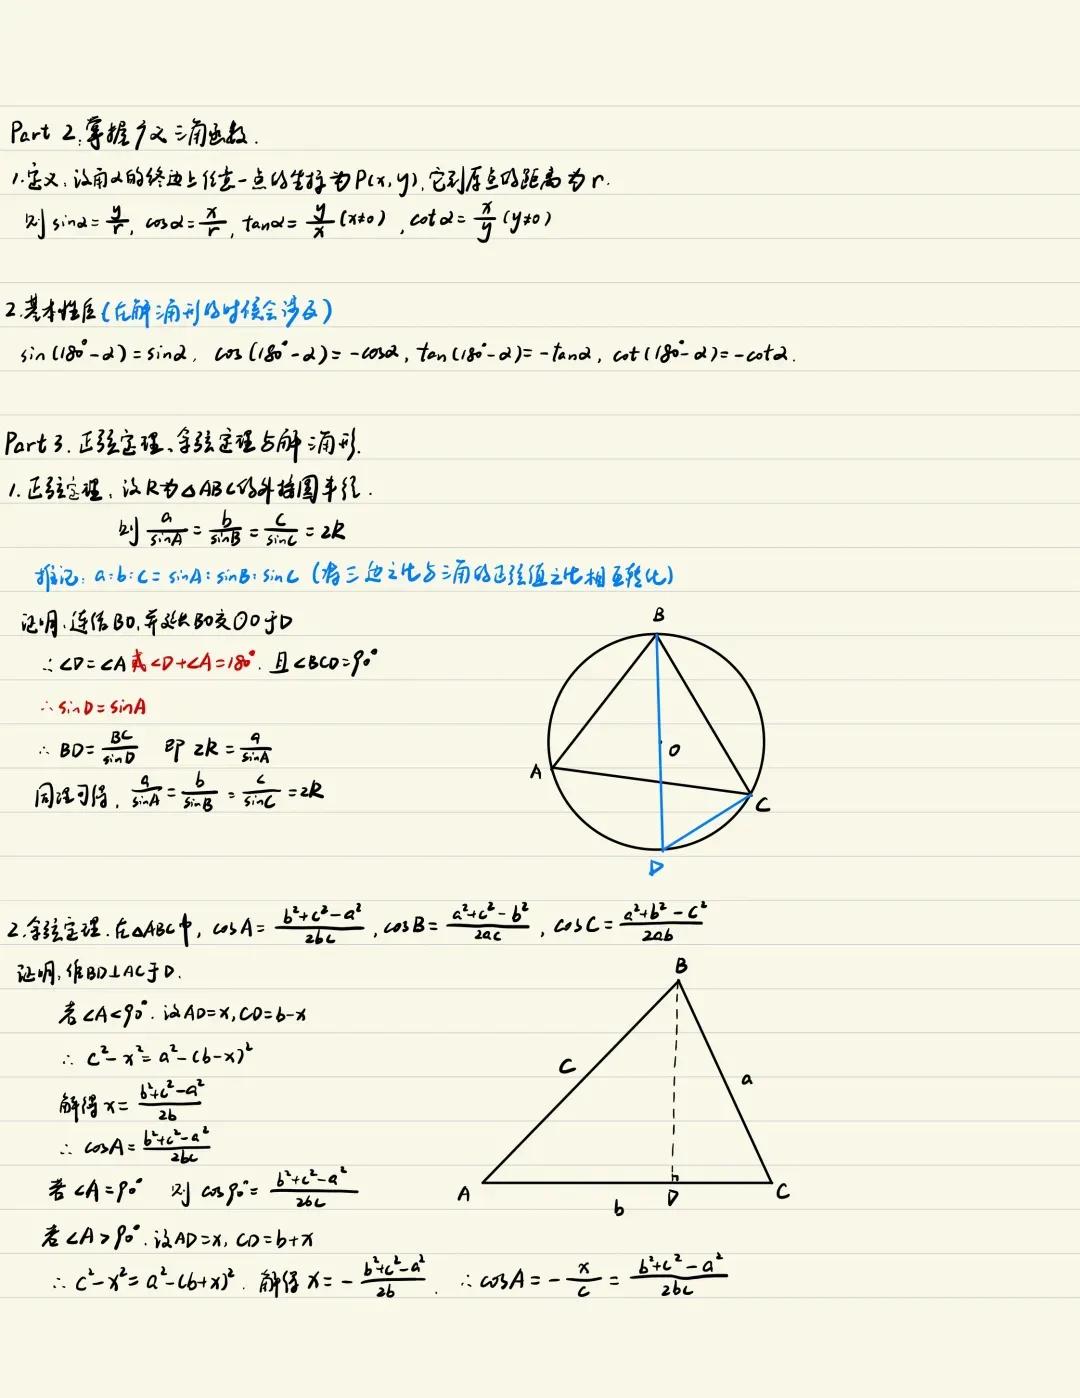 Part 2. 掌握广义三角函数.
1.定义:设角α的终边上任意一点的坐标为P(x,y),它到原点的距离为r.
则 sinα=y/r, cosα=x/r, tanα=y/x (x≠0), cotα=x/y (y≠0)
2.基本性质(在解三角形的时候会涉及)
sin(180°-α)=sinα, cos(180°-α)=-cosα, tan(180°-α)=-tanα, cot(180°-α)=-cotα.
Part 3. 正弦定理、余弦定理与解三角形.
1.正弦定理, 设R为△ABC的外接圆半径.
则 a/sinA = b/sinB = c/sinC = 2R
推论: a:b:c = sinA:sinB:sinC (将三边之比与三角的正弦值之比相互转化)
证明:连结BO,并延长BO交⊙O于D
∴∠D=∠A 或∠D+∠A=180°. 且∠BCD=90°
∴sinD=sinA
∴ BD= BC/sinD 即 2R = a/sinA
同理可得, a/sinA = b/sinB = c/sinC = 2R
B
O
A
C
D
2.余弦定理.在△ABC中, cosA= (b²+c²-a²)/2bc, cosB= (a²+c²-b²)/2ac, cosC= (a²+b²-c²)/2ab
证明:作BD⊥AC于D.
若∠A<90°. 设AD=x, CD=b-x
∴ c²-x²=a²-(b-x)²
解得 x= (b²+c²-a²)/2b
∴ cosA= (b²+c²-a²)/2bc
若∠A=90° 则 cos90°= (b²+c²-a²)/2bc
若∠A>90°.设AD=x, CD=b+x
∴ c²-x²=a²-(b+x)². 解得 x= - (b²+c²-a²)/2b. ∴cosA = - x/c = (b²+c²-a²)/2bc
B
c
a
A
D
C
b